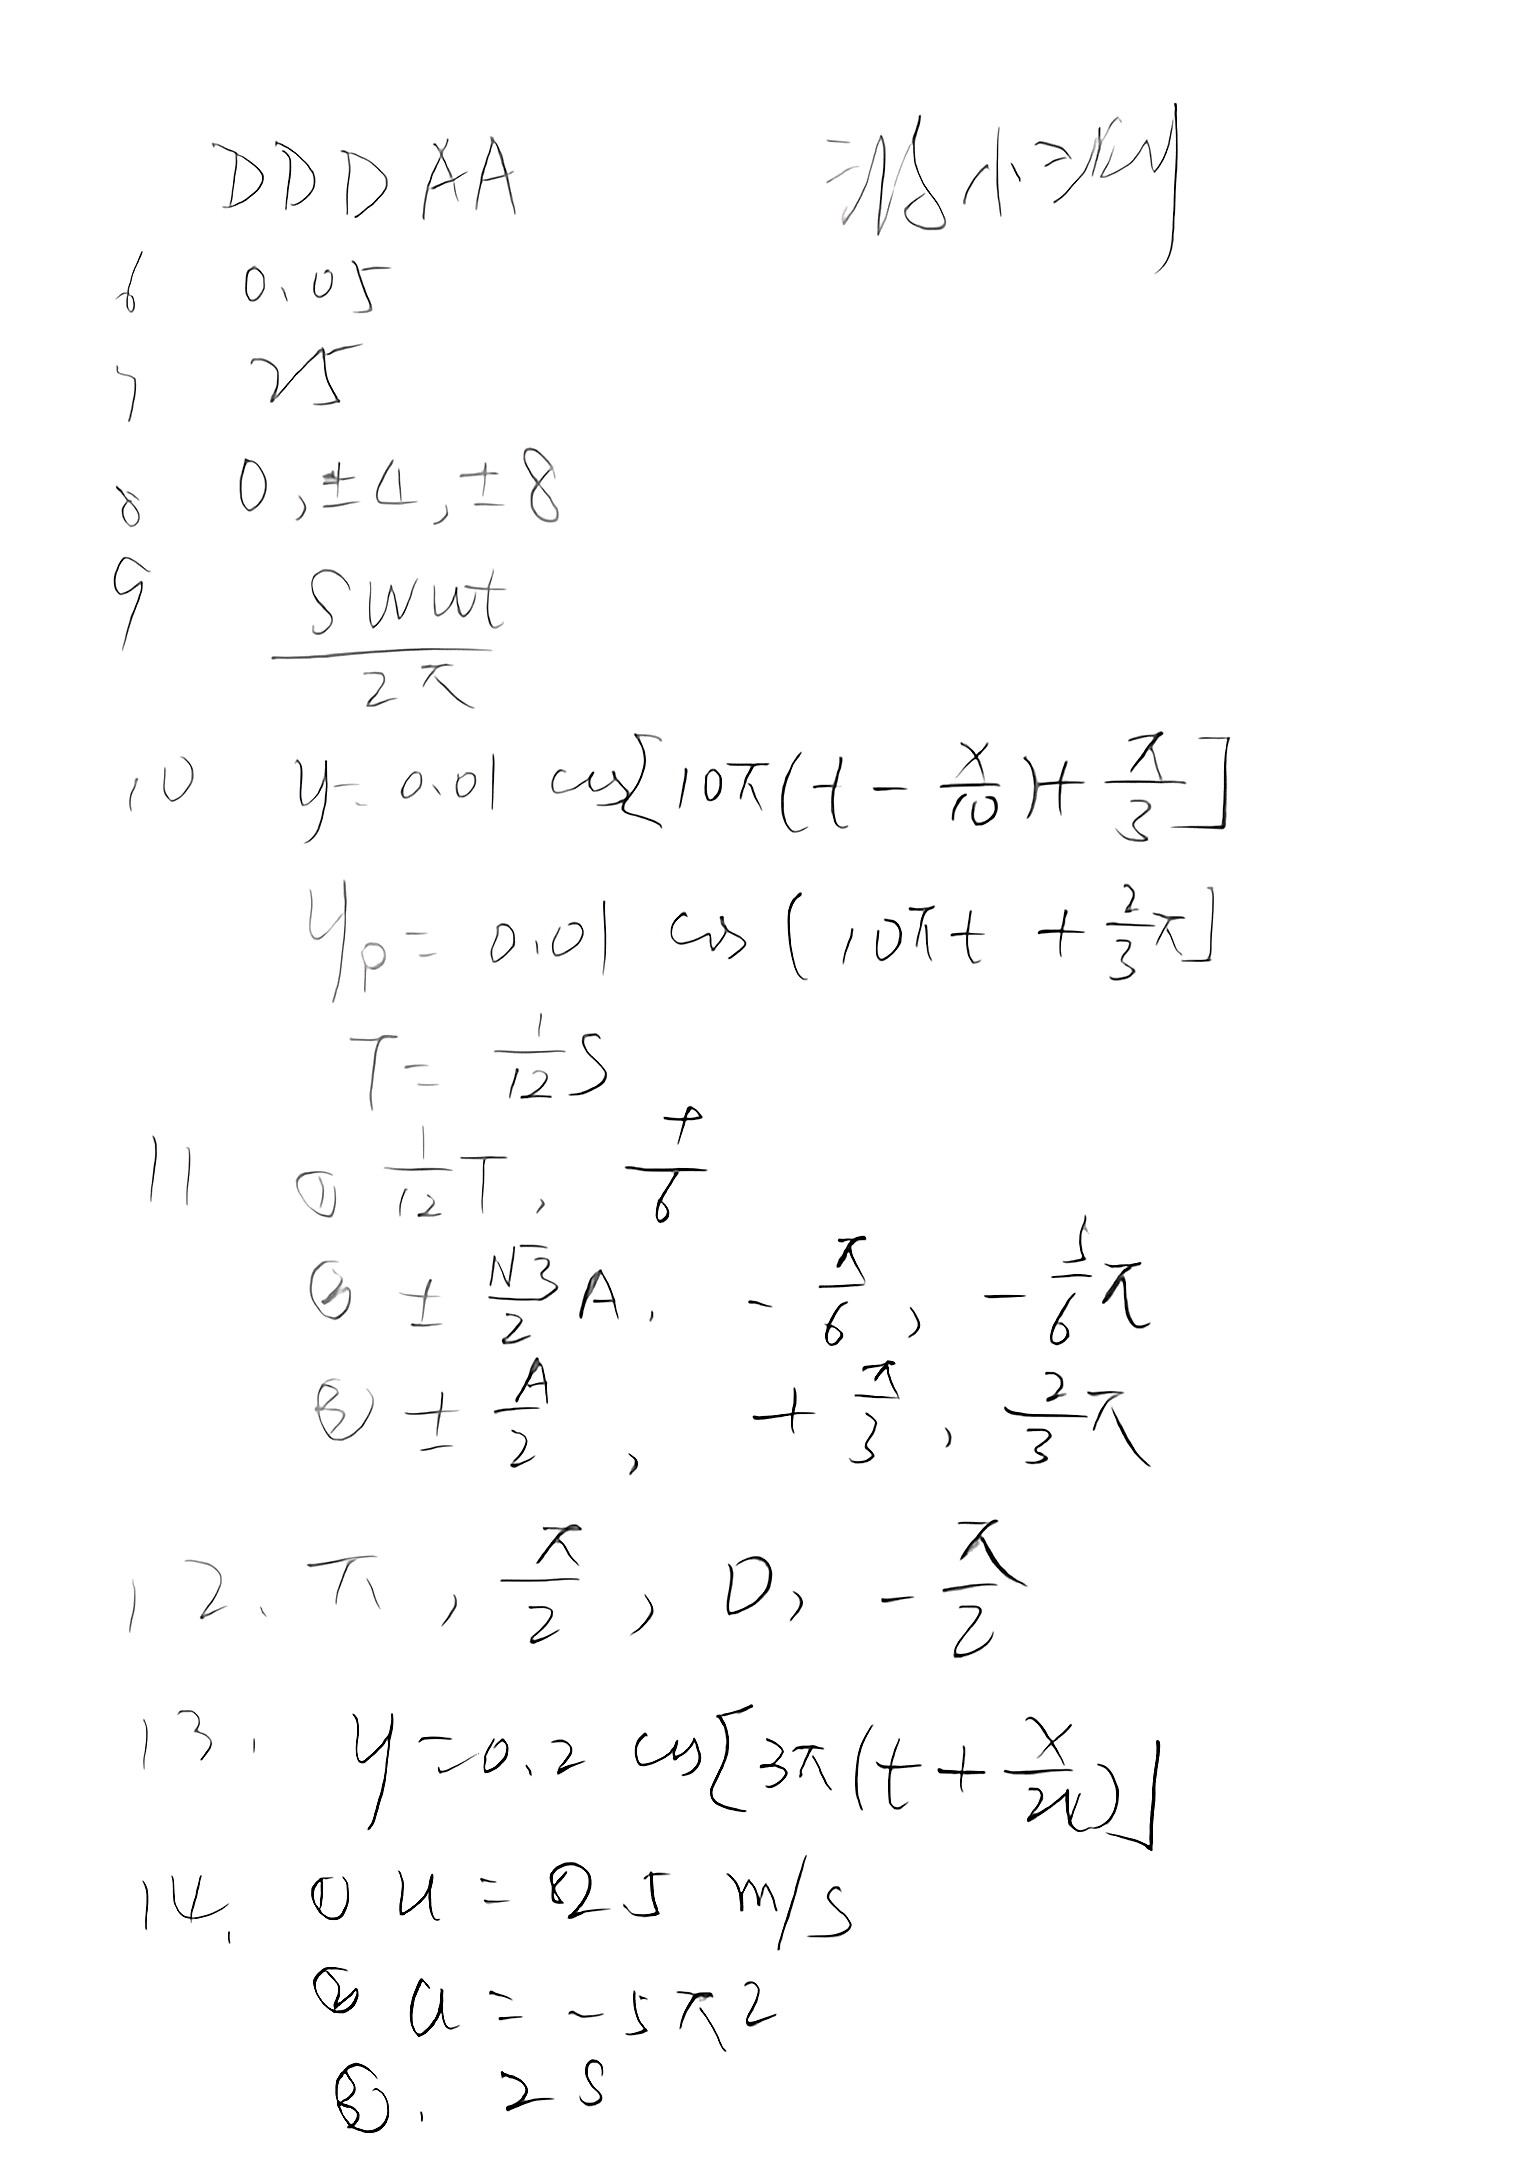 DDDAA
6 0.05
7 25
8 0, ±4, ±8
9 SWut/2π
10 y=0.01 cos[10π(t - x/10)+ π/3]
yp= 0.01 cos (10πt + 2/3π]
T= 1/12 S
11 ① 1/12 T, +/6
② ± √3/2 A, - π/6, - 5/6 π
③ ± A/2, + π/3, 2/3 π
12. π, π/2, 0, - π/2
13. y=0.2 cos[3π(t + x/20)]
14. ① u = 25 m/s
② a = -5π2
③. 2S